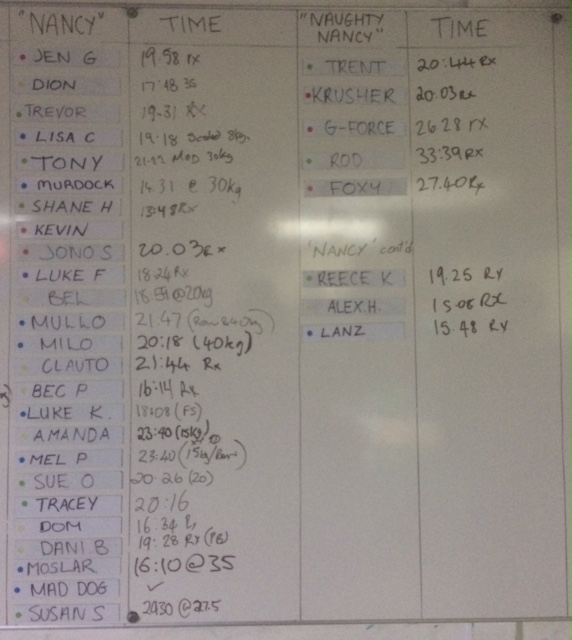 "NANCY" TIME
JEN G 19.58 rx
DION 17:48 35
TREVOR 19-31 RX
LISA C 19.18 Scaled 8kg.
TONY 21-12 MOD 30kg
MURDOCK 14.31 @ 30kg
SHANE H 13:48 Rx
KEVIN
JONO S 20.03 Rx
LUKE F 18:24 Rx
BEL 18:59 @20kg
MULLO 21:47
MILO 20:18 (40kg)
CLAUTO 21:44 Rx
BEC P 16:14 Rx
LUKE K. 18:08 (FS)
AMANDA 23:40 (15kg)
MEL P 23:40 (15kg/Row)
SUE O 20-26 (20)
TRACEY 20:16
DOM 16:34
DANI.B 19:28 RX (PB)
MOSLAR 16:10 @35
MAD DOG ✓
SUSAN S 2930 @27.5
"NAUGHTY NANCY" TIME
TRENT 20:44 Rx
KRUSHER 20:03 Rx
G-FORCE 26 28 rx
ROD 33:39 RX
FOXY 27.40 Rx
'NANCY' cont'd
REECE K 19.25 RX
ALEX.H. 15.06 RX
LANZ 15.48 RX